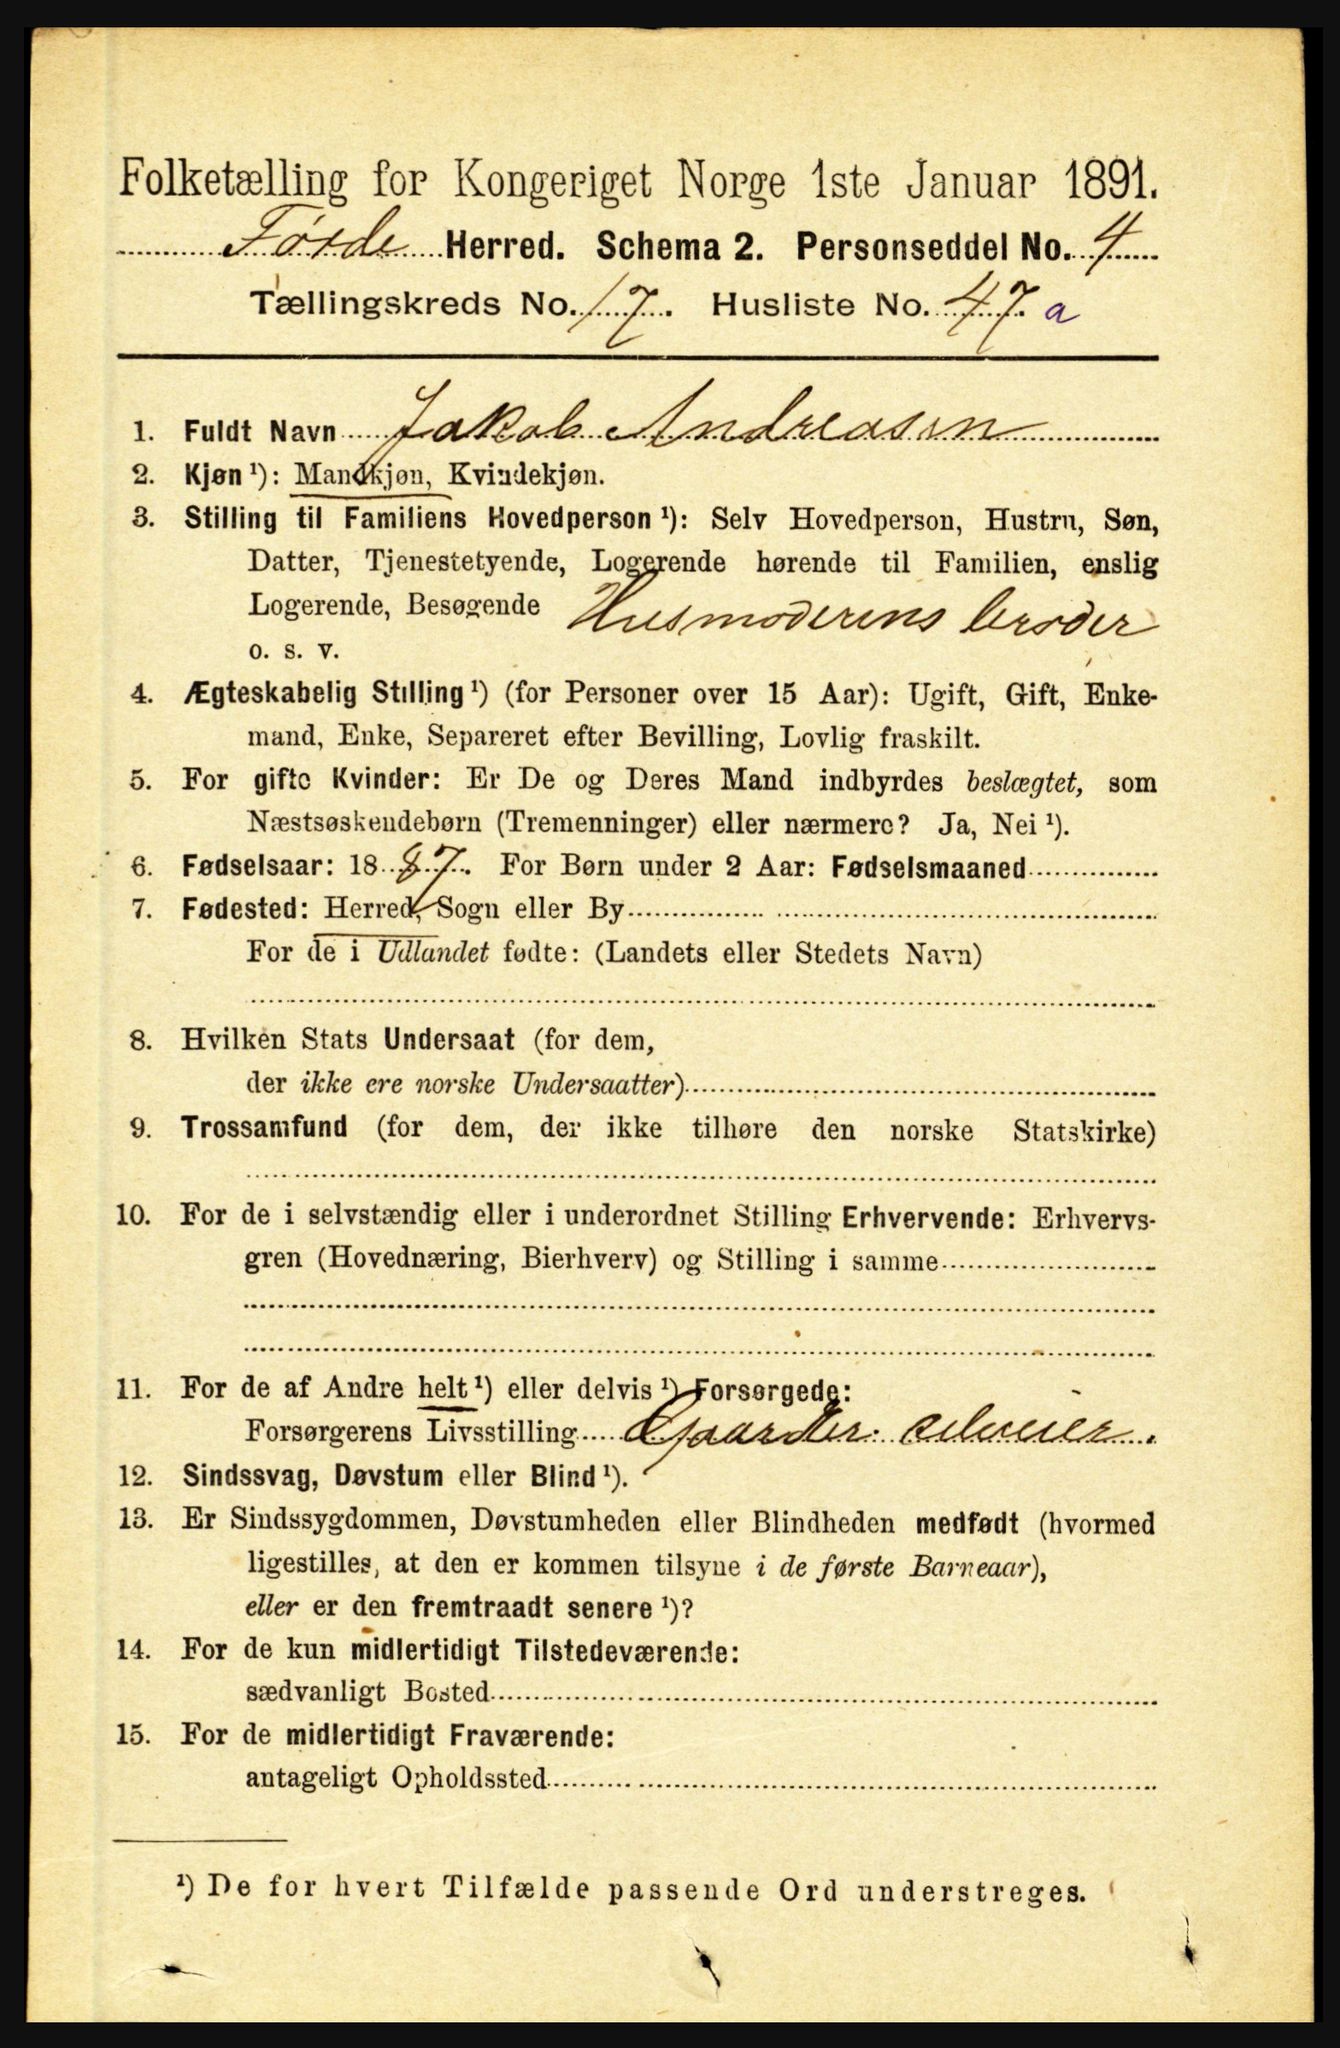 Folketælling for Kongeriget Norge 1ste Januar 1891.
Førde Herred. Schema 2. Personseddel No. 4
Tællingskreds No. 17. Husliste No. 47 a
1. Fuldt Navn Jakob Andreasen
2. Kjøn ¹): Mandkjøn, Kvindekjøn.
3. Stilling til Familiens Hovedperson ¹): Selv Hovedperson, Hustru, Søn,
Datter, Tjenestetyende, Logerende hørende til Familien, enslig
Logerende, Besøgende Husmoderens broder
o. s. v.
4. Ægteskabelig Stilling ¹) (for Personer over 15 Aar): Ugift, Gift, Enke-
mand, Enke, Separeret efter Bevilling, Lovlig fraskilt.
5. For gifte Kvinder: Er De og Deres Mand indbyrdes beslægtet, som
Næstsøskendebørn (Tremenninger) eller nærmere? Ja, Nei ¹).
6. Fødselsaar: 1887. For Børn under 2 Aar: Fødselsmaaned
7. Fødested: Herred, Sogn eller By
For de i Udlandet fødte: (Landets eller Stedets Navn)
8. Hvilken Stats Undersaat (for dem,
der ikke ere norske Undersaatter)
9. Trossamfund (for dem, der ikke tilhøre den norske Statskirke)
10. For de i selvstændig eller i underordnet Stilling Erhvervende: Erhvervs-
gren (Hovednæring, Bierhverv) og Stilling i samme
11. For de af Andre helt ¹) eller delvis ¹) Forsørgede:
Forsørgerens Livsstilling Gaardbr. selveier.
12. Sindssvag, Døvstum eller Blind ¹).
13. Er Sindssygdommen, Døvstumheden eller Blindheden medfødt (hvormed
ligestilles, at den er kommen tilsyne i de første Barneaar),
eller er den fremtraadt senere ¹)?
14. For de kun midlertidigt Tilstedeværende:
sædvanligt Bosted
15. For de midlertidigt Fraværende:
antageligt Opholdssted
¹) De for hvert Tilfælde passende Ord understreges.